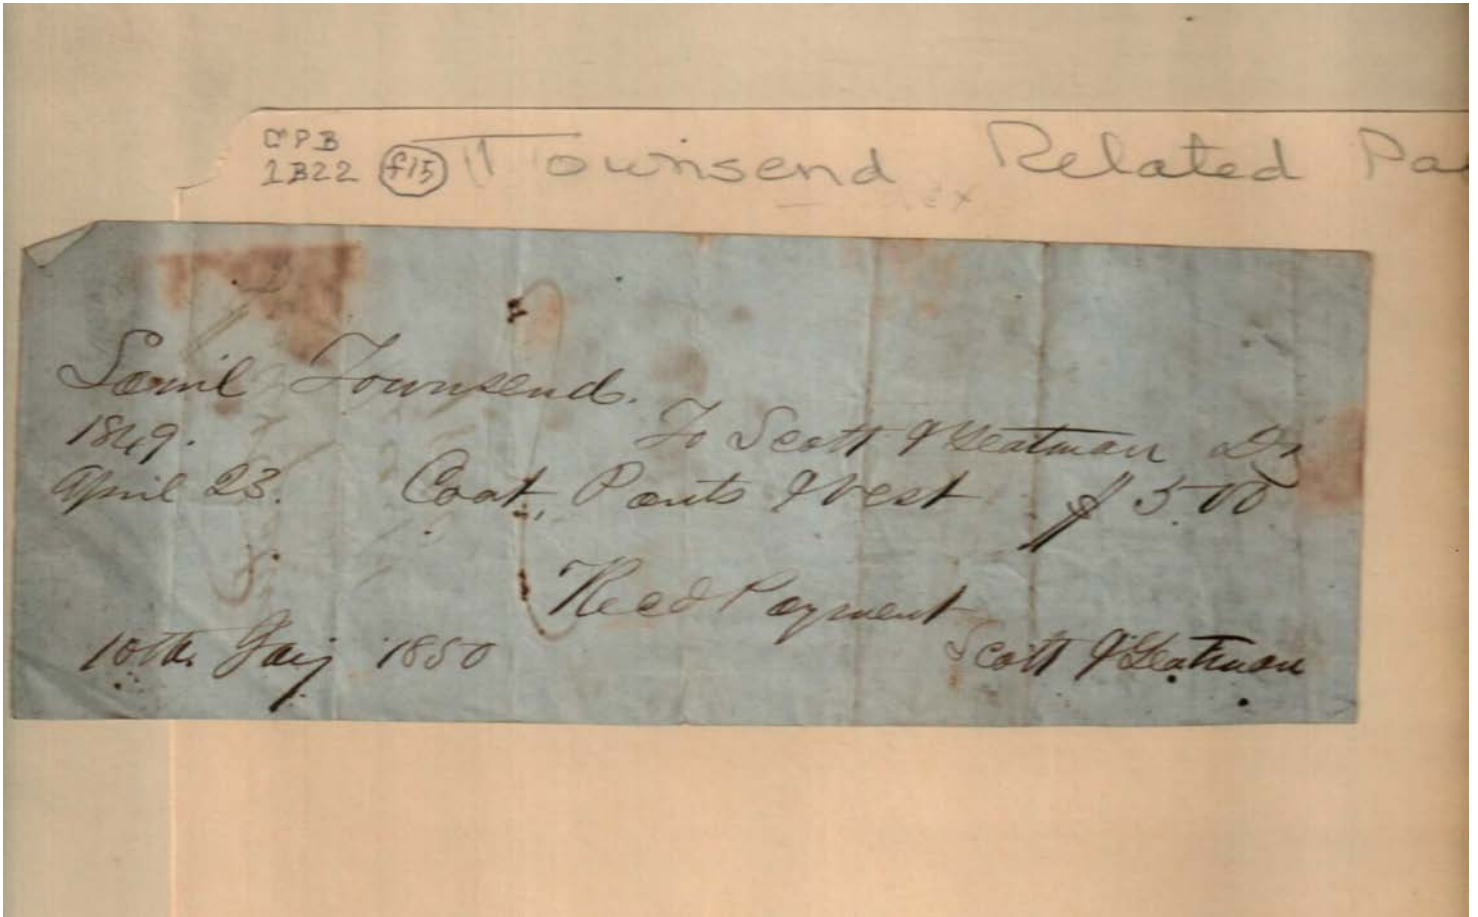 CPB
1B22 f15 Townsend Related Pa
Saml Townsend.
1849. To Scott & Yeatman Dr
April 23. Coat, Pants & Vest $5.00
Recd Payment
10th Jany 1850 Scott & Yeatman